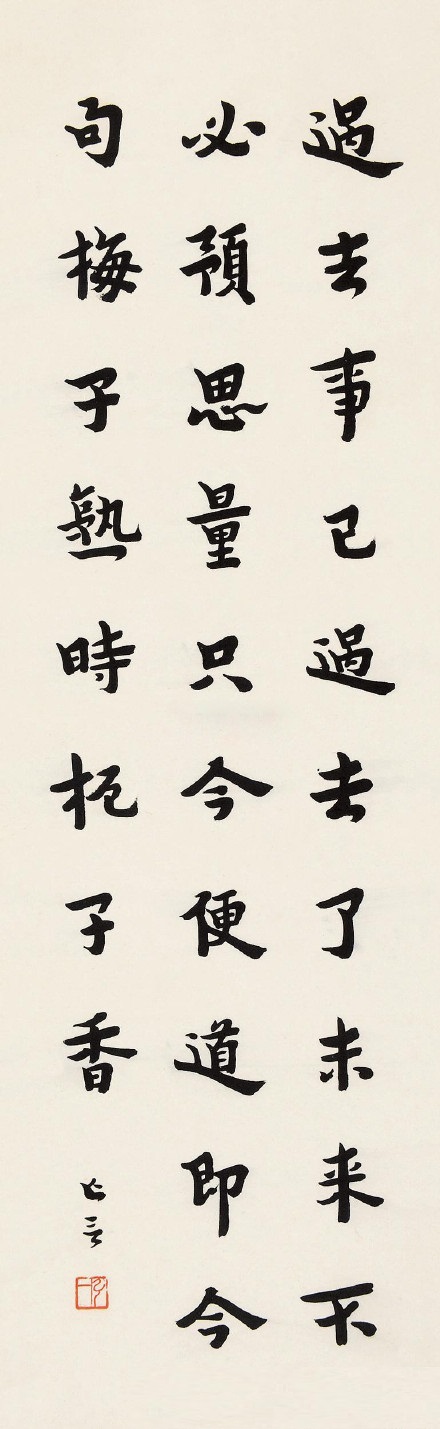 過去事已過去了未来不
必預思量只今便道即今
句梅子熟時栀子香